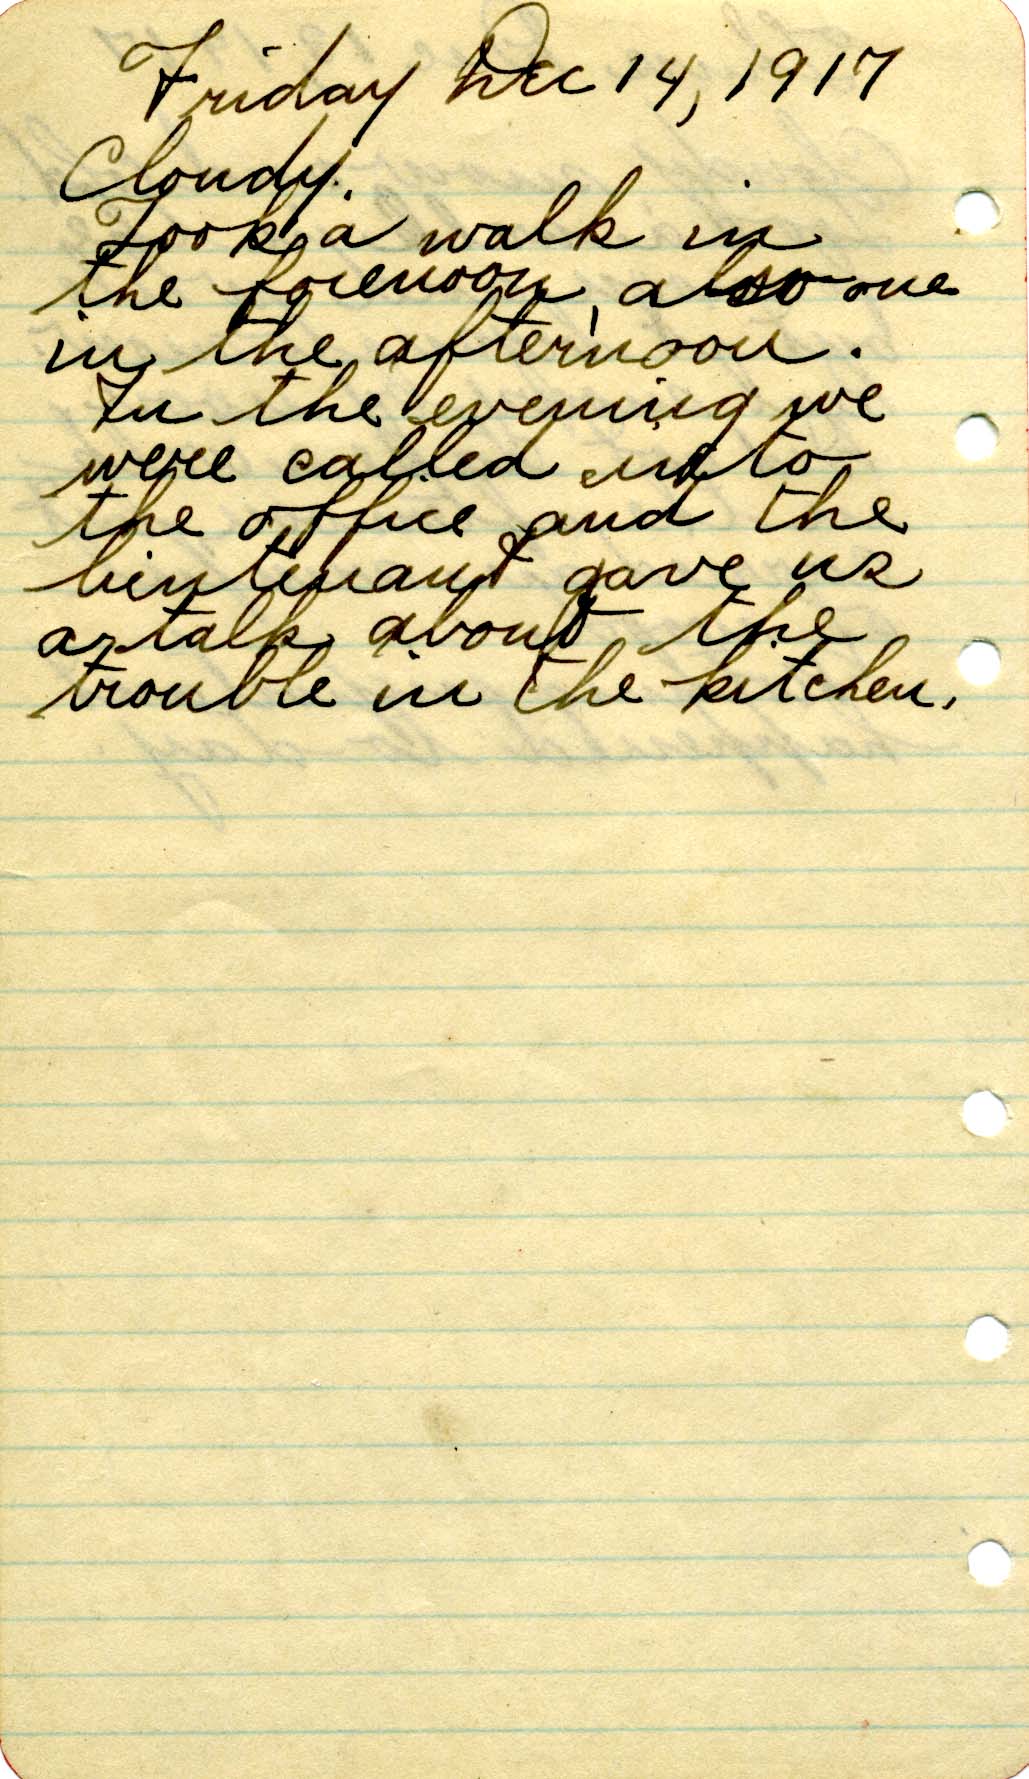 Friday Dec 14, 1917
Cloudy.
Took a walk in
the forenoon, also one
in the afternoon.
In the evening we
were called into
the office and the
lieutenant gave us
a talk about the
trouble in the kitchen.